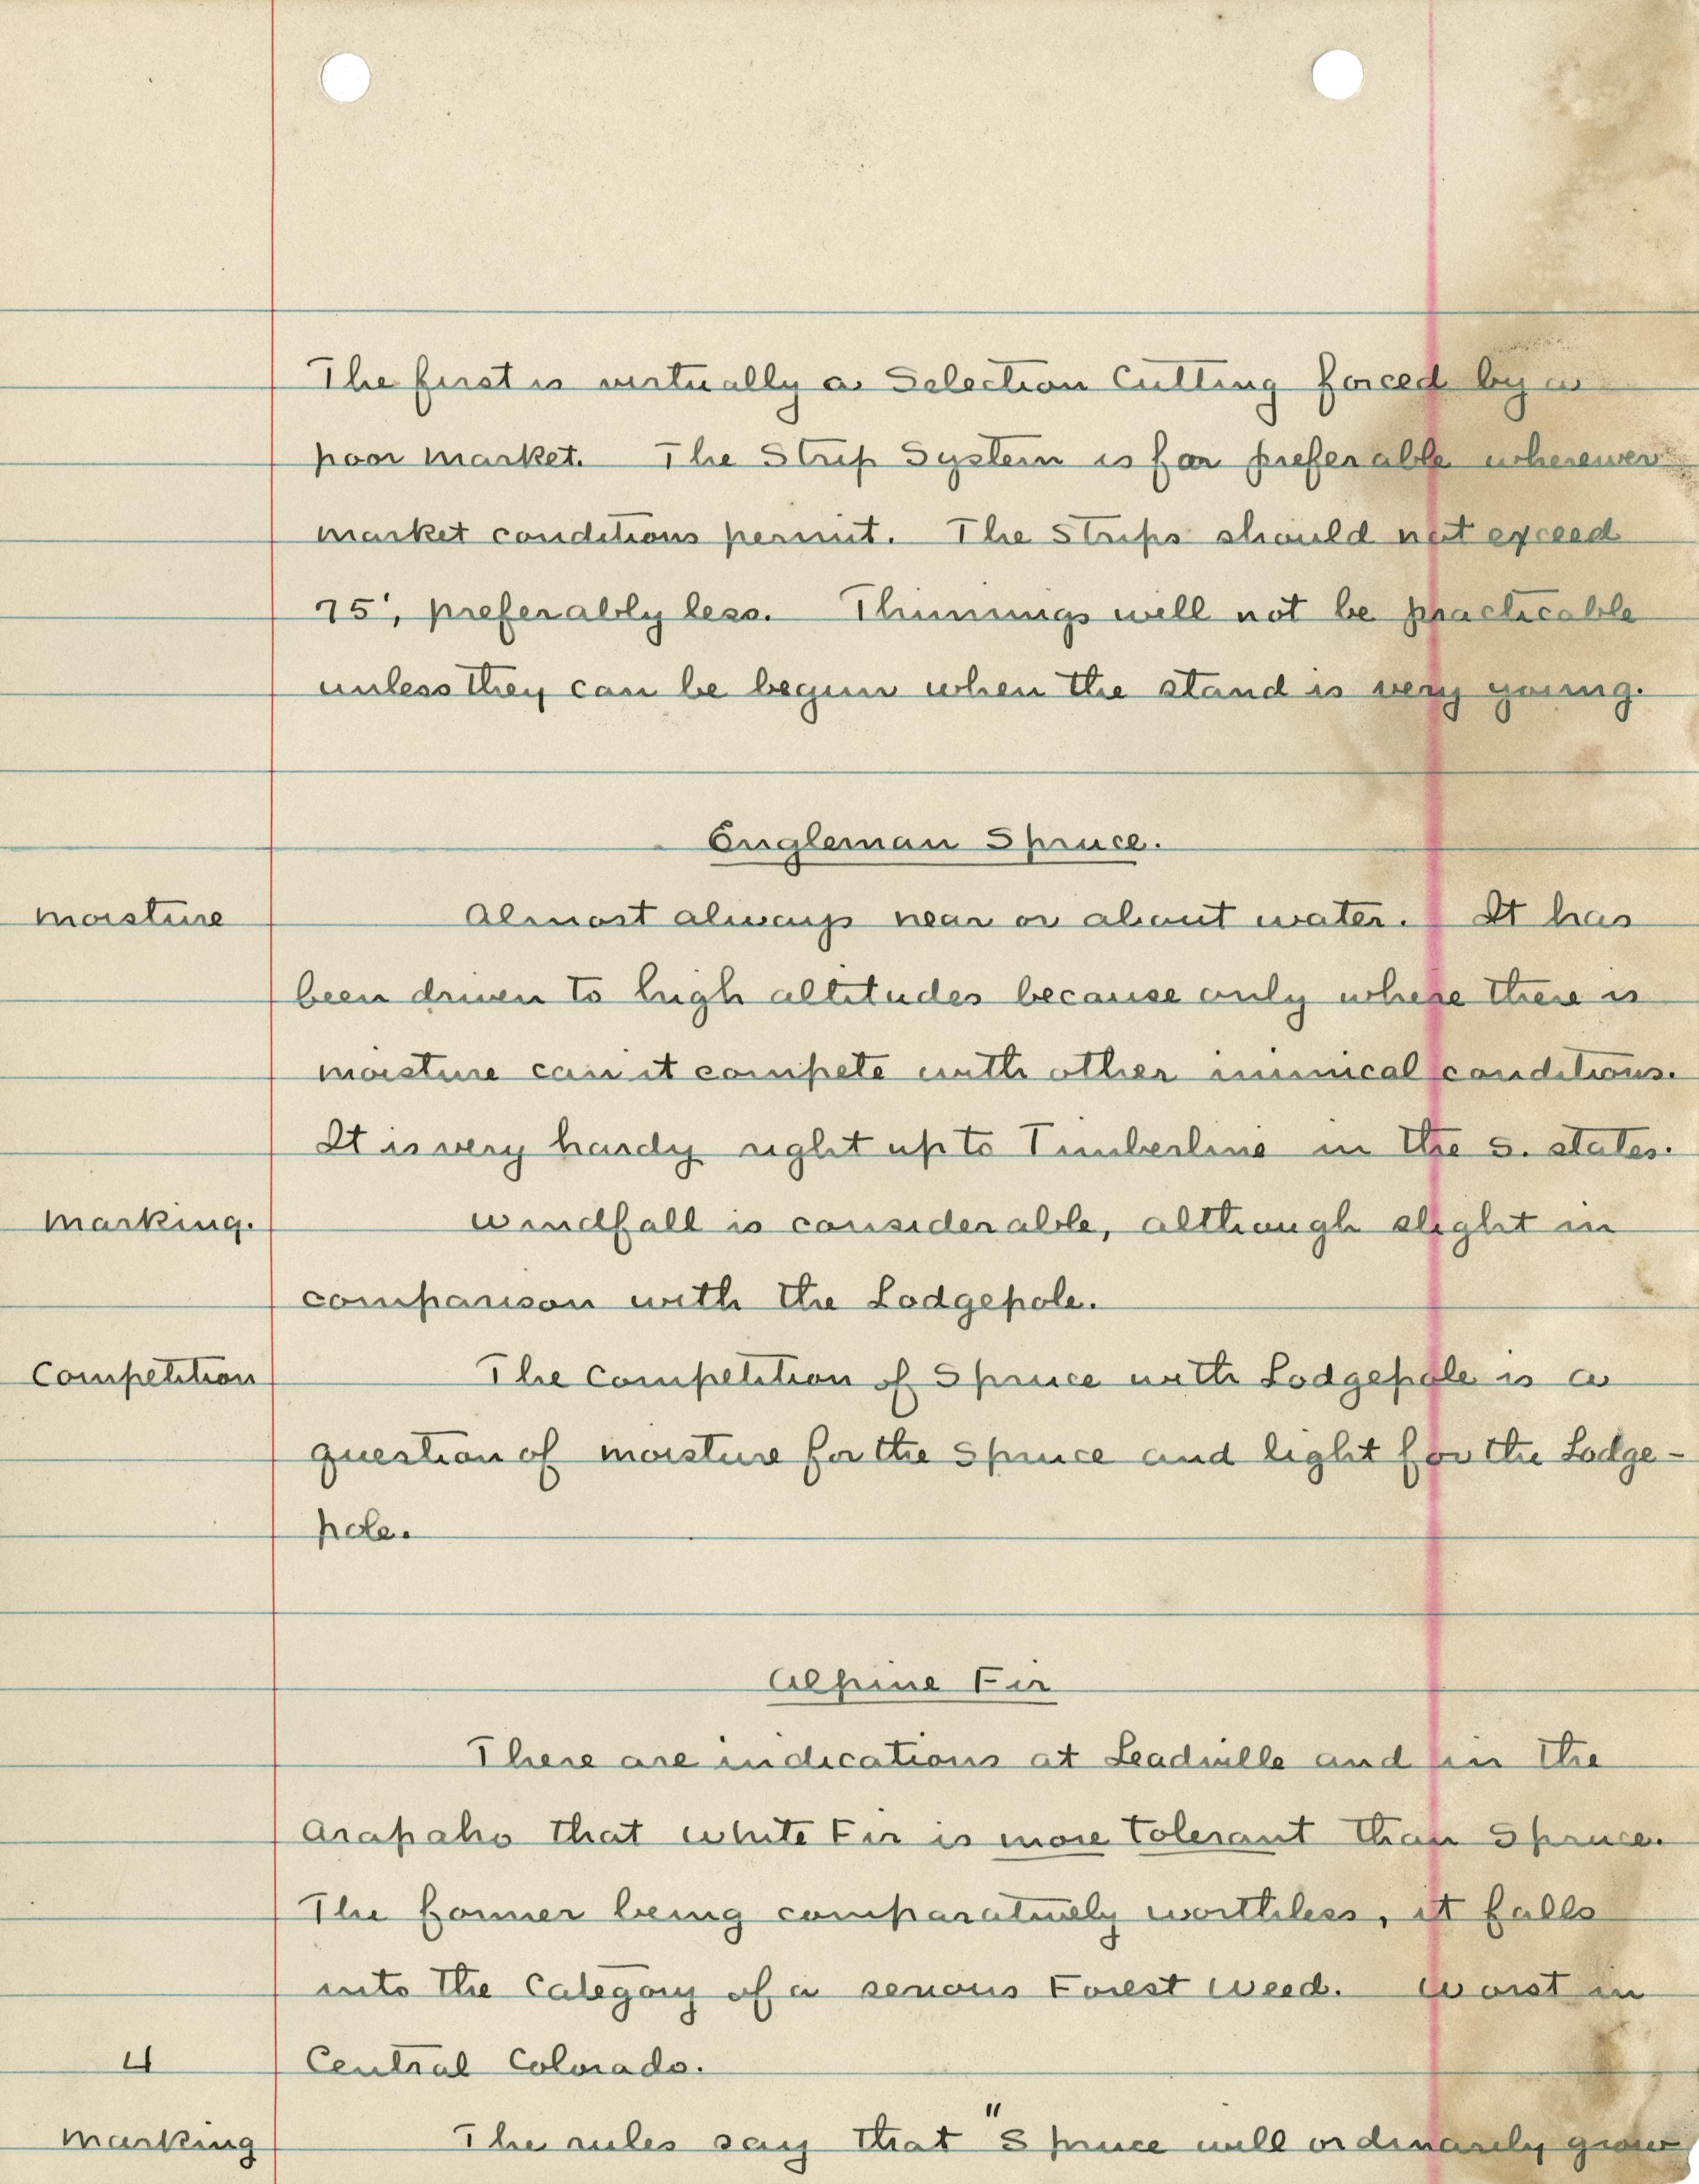 The first is virtually a Selection Cutting forced by a
poor market. The Strip System is far preferable wherever
market conditions permit. The Strips should not exceed
75', preferably less. Thinnings will not be practicable
unless they can be begun when the stand is very young.
Engleman Spruce.
Moisture Almost always near or about water. It has
been driven to high altitudes because only where there is
moisture can it compete with other inimical conditions.
It is very hardy right up to Timberline in the S. states.
Marking. Windfall is considerable, although slight in
comparison with the Lodgepole.
Competition The Competition of Spruce with Lodgepole is a
question of moisture for the Spruce and light for the Lodge-
pole.
Alpine Fir
There are indications at Leadville and in the
Arapaho that White Fir is more Tolerant than Spruce.
The former being comparatively worthless, it falls
into the Category of a serious Forest Weed. Worst in
4 Central Colorado.
Marking The rules say that "Spruce will ordinarily grow